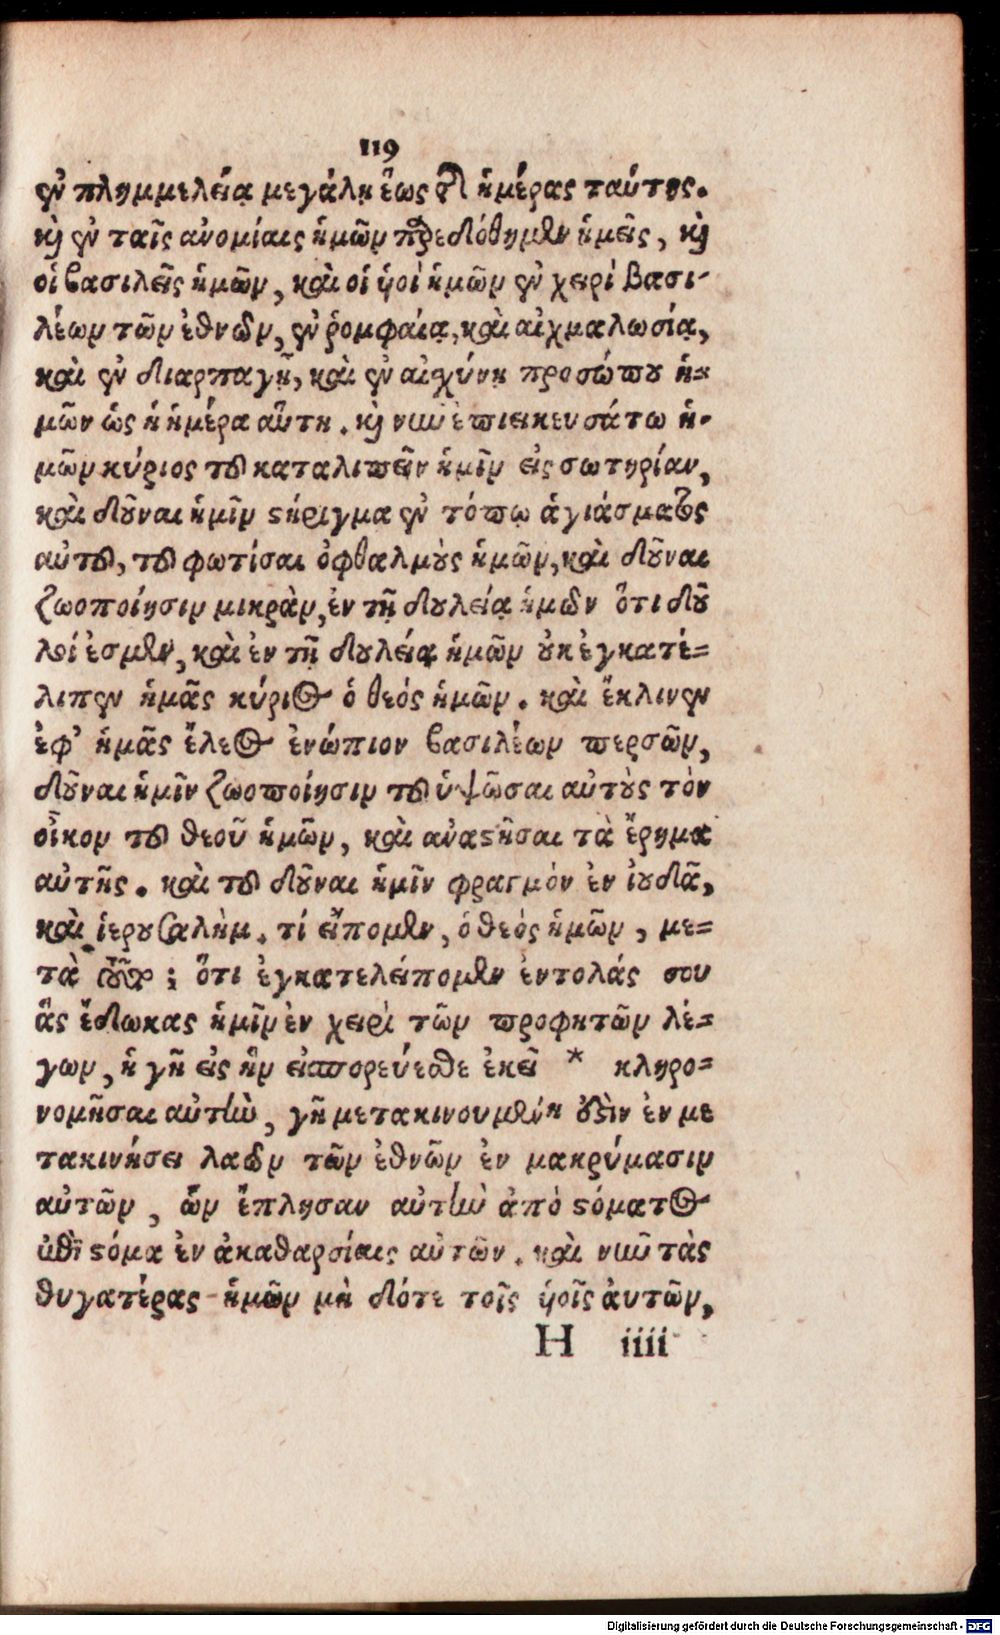 119
ἐν πλημμελείᾳ μεγάλῃ ἕως τῆς ἡμέρας ταύτης.
καὶ ἐν ταῖς ἀνομίαις ἡμῶν παρεδόθημεν ἡμεῖς, καὶ
οἱ βασιλεῖς ἡμῶν, καὶ οἱ ὑοὶ ἡμῶν ἐν χειρὶ βασι-
λέων τῶν ἐθνῶν, ἐν ῥομφαίᾳ, καὶ αἰχμαλωσίᾳ,
καὶ ἐν διαρπαγῇ, καὶ ἐν αἰσχύνῃ προσώπου ἡ=
μῶν ὡς ἡ ἡμέρα αὕτη. καὶ νῦν ἐπιεικευσάτω ἡ-
μῶν κύριος τοῦ καταλιπεῖν ἡμῖν εἰς σωτηρίαν,
καὶ δοῦναι ἡμῖν στήριγμα ἐν τόπῳ ἁγιάσματος
αὐτοῦ, τοῦ φωτίσαι ὀφθαλμοὺς ἡμῶν, καὶ δοῦναι
ζωοποίησιν μικρὰν, ἐν τῇ δουλείᾳ ἡμῶν ὅτι δοῦ
λοί ἐσμεν, καὶ ἐν τῇ δουλείᾳ ἡμῶν οὐκ ἐγκατέ=
λιπεν ἡμᾶς κύριος ὁ θεός ἡμῶν. καὶ ἔκλινεν
ἐφ' ἡμᾶς ἔλεος ἐνώπιον βασιλέων περσῶν,
δοῦναι ἡμῖν ζωοποίησιν τοῦ ὑψῶσαι αὐτοὺς τὸν
οἶκον τοῦ θεοῦ ἡμῶν, καὶ ἀναστῆσαι τὰ ἔρημα
αὐτῆς. καὶ τοῦ δοῦναι ἡμῖν φραγμόν ἐν ἰουδᾶ,
καὶ ἱερουσαλὴμ. τί εἴπομεν, ὁ θεός ἡμῶν, με=
τὰ τοῦτο; ὅτι ἐγκατελείπομεν ἐντολάς σου
ἃς ἔδωκας ἡμῖν ἐν χειρὶ τῶν προφητῶν λέ=
γων, ἡ γῆ εἰς ἣν εἰσπορεύεσθε ἐκεῖ * κληρο=
νομῆσαι αὐτὴν, γῆ μετακινουμένη οὐσὶν ἐν με
τακινήσει λαῶν τῶν ἐθνῶν ἐν μακρύμασιν
αὐτῶν, ὧν ἔπλησαν αὐτὴν ἀπὸ στόματος
ἐπὶ στόμα ἐν ἀκαθαρσίαις αὐτῶν. καὶ νῦν τὰς
θυγατέρας ἡμῶν μὴ δότε τοῖς ὑοῖς ἀυτῶν,
H iiii
Digitalisierung gefördert durch die Deutsche Forschungsgemeinschaft - DFG